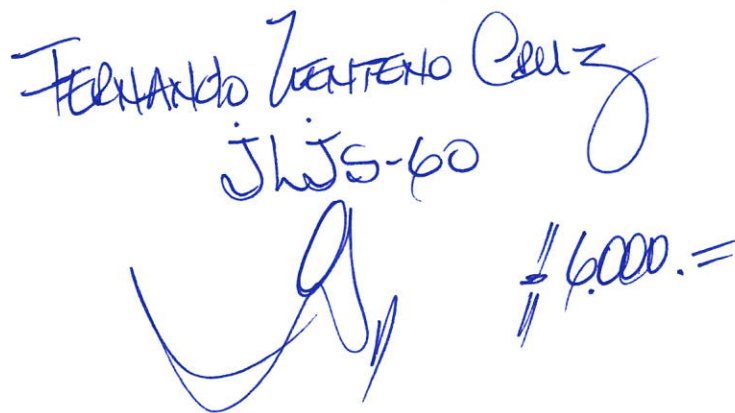 FERNANDO ZENTENO CRUZ
JLJS-60
$6.000.=